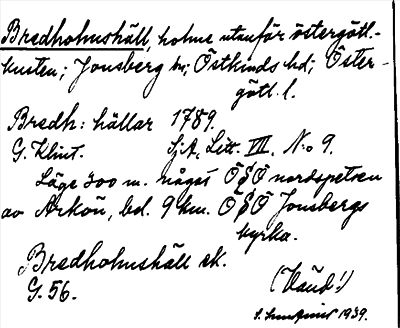 Bredholmshäll, holme utanför östergötl.-
kusten; Jonsberg sn; Östkinds hd; Öster-
götl. l.
Bredh: hällar 1789.
G. Klint. SjA, Litt. VII. N:o 9.
Läge 300 m. något OSO nordspetsen
av Arkön, bel. 9 km. OSO Jonsbergs
kyrka.
Bredholmshäll ek.
G. 56.
(Vånd!)
1939.